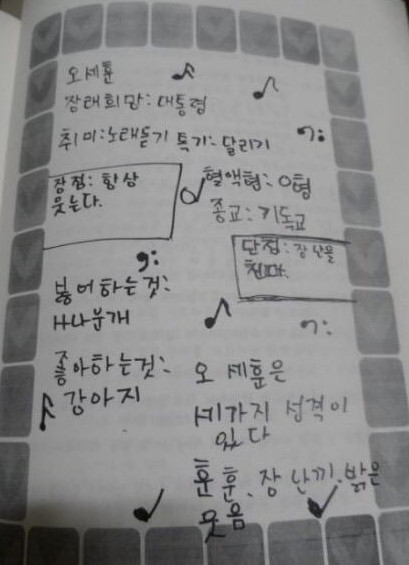 오세훈
장래희망:대통령
취미:노래듣기 특기:달리기
장점: 항상
웃는다.
혈액형: O형
종교:기독교
단점:장난을
친다.
싫어하는것:
HH분개
좋아하는것:
강아지
오 세훈은
세가지 성격이
있다
훈훈, 장난끼, 밝은
웃음